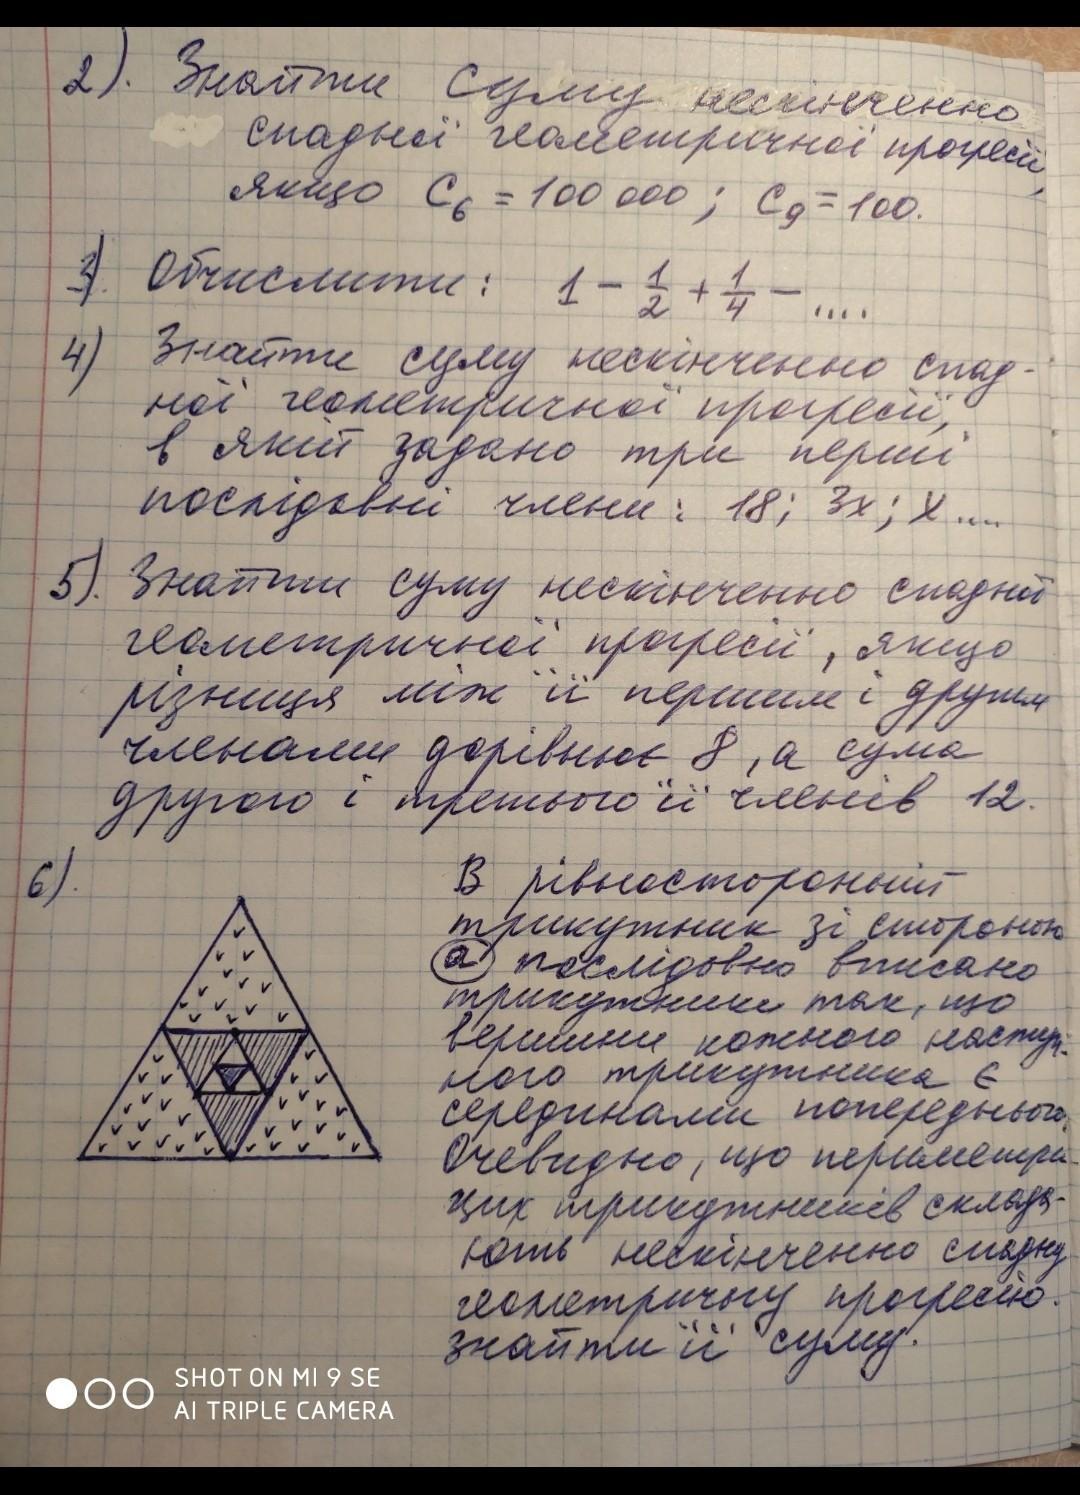 2). Знайти суму нескінченно
спадної геометричної прогресії,
якщо C₆ = 100 000; C₉ = 100.
3). Обчислити: 1 - 1/2 + 1/4 - ....
4) Знайти суму нескінченно спад-
ної геометричної прогресії,
в якій задано три перші
послідовні члени: 18; 3x; x ....
5). Знайти суму нескінченно спадної
геометричної прогресії, якщо
різниця між її першим і другим
членами дорівнює 8, а сума
другого і третього її членів 12.
6). В рівносторонній
трикутник зі стороною
a послідовно вписано
трикутники так, що
вершини кожного наступ-
ного трикутника є
серединами попереднього.
Очевидно, що периметри
цих трикутників склада-
ють нескінченно спадну
геометричну прогресію.
знайти її суму.
SHOT ON MI 9 SE
AI TRIPLE CAMERA